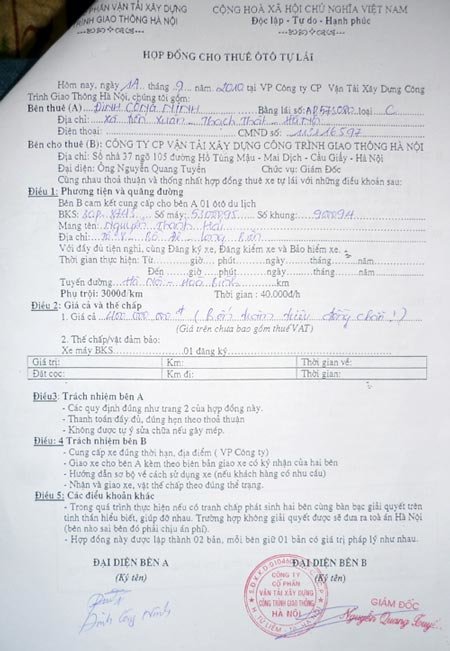 PHẦN VẬN TẢI XÂY DỰNG
TRÌNH GIAO THÔNG HÀ NỘI
CỘNG HOÀ XÃ HỘI CHỦ NGHĨA VIỆT NAM
Độc lập - Tự do - Hạnh phúc
HỢP ĐỒNG CHO THUÊ ÔTÔ TỰ LÁI
Hôm nay, ngày 1A tháng 9 năm 2010 tại VP Công ty CP Vận Tải Xây Dựng Công
Trình Giao Thông Hà Nội, chúng tôi gồm:
Bên thuê (A) ĐINH CÔNG MINH Bằng lái số: loại C
Địa chỉ: Xã Tiến Xuân - Thạch Thất - Hà Nội
Điện thoại: CMND số:
Bên cho thuê (B): CÔNG TY CP VẬN TẢI XÂY DỰNG CÔNG TRÌNH GIAO THÔNG HÀ NỘI
Địa chỉ: Số nhà 37 ngõ 105 đường Hồ Tùng Mậu - Mai Dịch - Cầu Giấy - Hà Nội
Đại diện: Ông Nguyễn Quang Tuyến Chức vụ: Giám Đốc
Cùng nhau thoả thuận và thống nhất hợp đồng thuê xe tự lái với những điều khoản sau:
Điều 1: Phương tiện và quãng đường
Bên B cam kết cung cấp cho bên A 01 ôtô du lịch
BKS: Số máy: Số khung:
Mang tên: Nguyễn Thanh Hải
Địa chỉ: Bồ Đề - Long Biên
Với đầy đủ tiện nghi, cùng Đăng ký xe, Đăng kiểm xe và Bảo hiểm xe.
Thời gian thực hiện: Từ giờ phút ngày tháng năm
Đến giờ phút ngày tháng năm
Tuyến đường Hà Nội - Hoà Bình km
Phụ trội: 3000đ/km Thời gian: 40.000đ/h
Điều 2: Giá cả và thế chấp
1. Giá cả 400 000 000đ (Bốn trăm triệu đồng chẵn!)
(Giá trên chưa bao gồm thuế VAT)
2. Thế chấp/vật đảm bảo:
Xe máy BKS 01 đăng ký
Giá trị: Km: Thời gian về:
Đặt cọc: Km đi: Thời gian:
Điều3: Trách nhiệm bên A
- Các quy định đúng như trang 2 của hợp đồng này.
- Thanh toán đầy đủ, đúng hẹn theo thoả thuận
- Không được tự ý sửa chữa nếu gãy mép.
Điều: 4 Trách nhiệm bên B
- Cung cấp xe đúng thời hạn, địa điểm ( VP Công ty)
- Giao xe cho bên A kèm theo biên bản giao xe có ký nhận của hai bên
- Hướng dẫn sơ bộ về cách sử dụng xe (nếu khách hàng có nhu cầu)
- Nhận và giao xe, vật thế chấp theo đúng thể trạng.
Điều 5: Các điều khoản khác
- Trong quá trình thực hiện nếu có tranh chấp phát sinh hai bên cùng bàn bạc giải quyết trên
tinh thần hiểu biết, giúp đỡ nhau. Trường hợp không giải quyết được sẽ đưa ra toà án Hà Nội
(bên nào sai bên đó phải chịu án phí).
- Hợp đồng này được lập thành 02 bản, mỗi bên giữ 01 bản có giá trị pháp lý như nhau.
ĐẠI DIỆN BÊN A ĐẠI DIỆN BÊN B
(Ký tên) (Ký tên)
Đinh Công Minh
CÔNG TY
CỔ PHẦN
VẬN TẢI XÂY DỰNG
CÔNG TRÌNH GIAO THÔNG
HÀ NỘI
GIÁM ĐỐC
Nguyễn Quang Tuyến